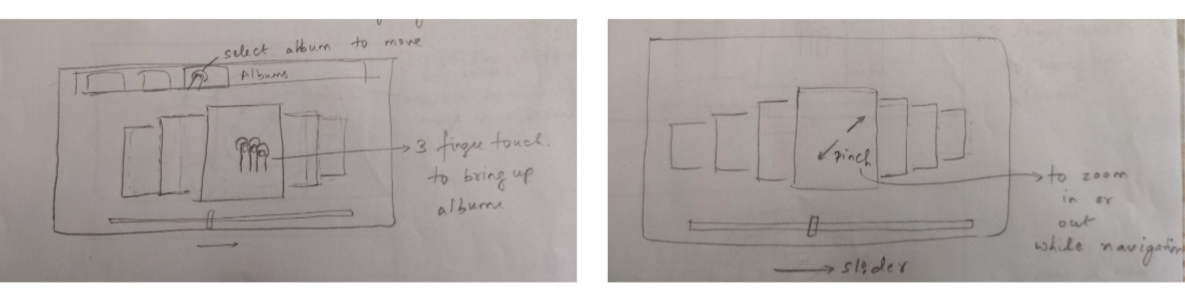 select album to move
Albums
3 finger touch
to bring up
albums
pinch
to zoom
in or
out
while navigation
slider